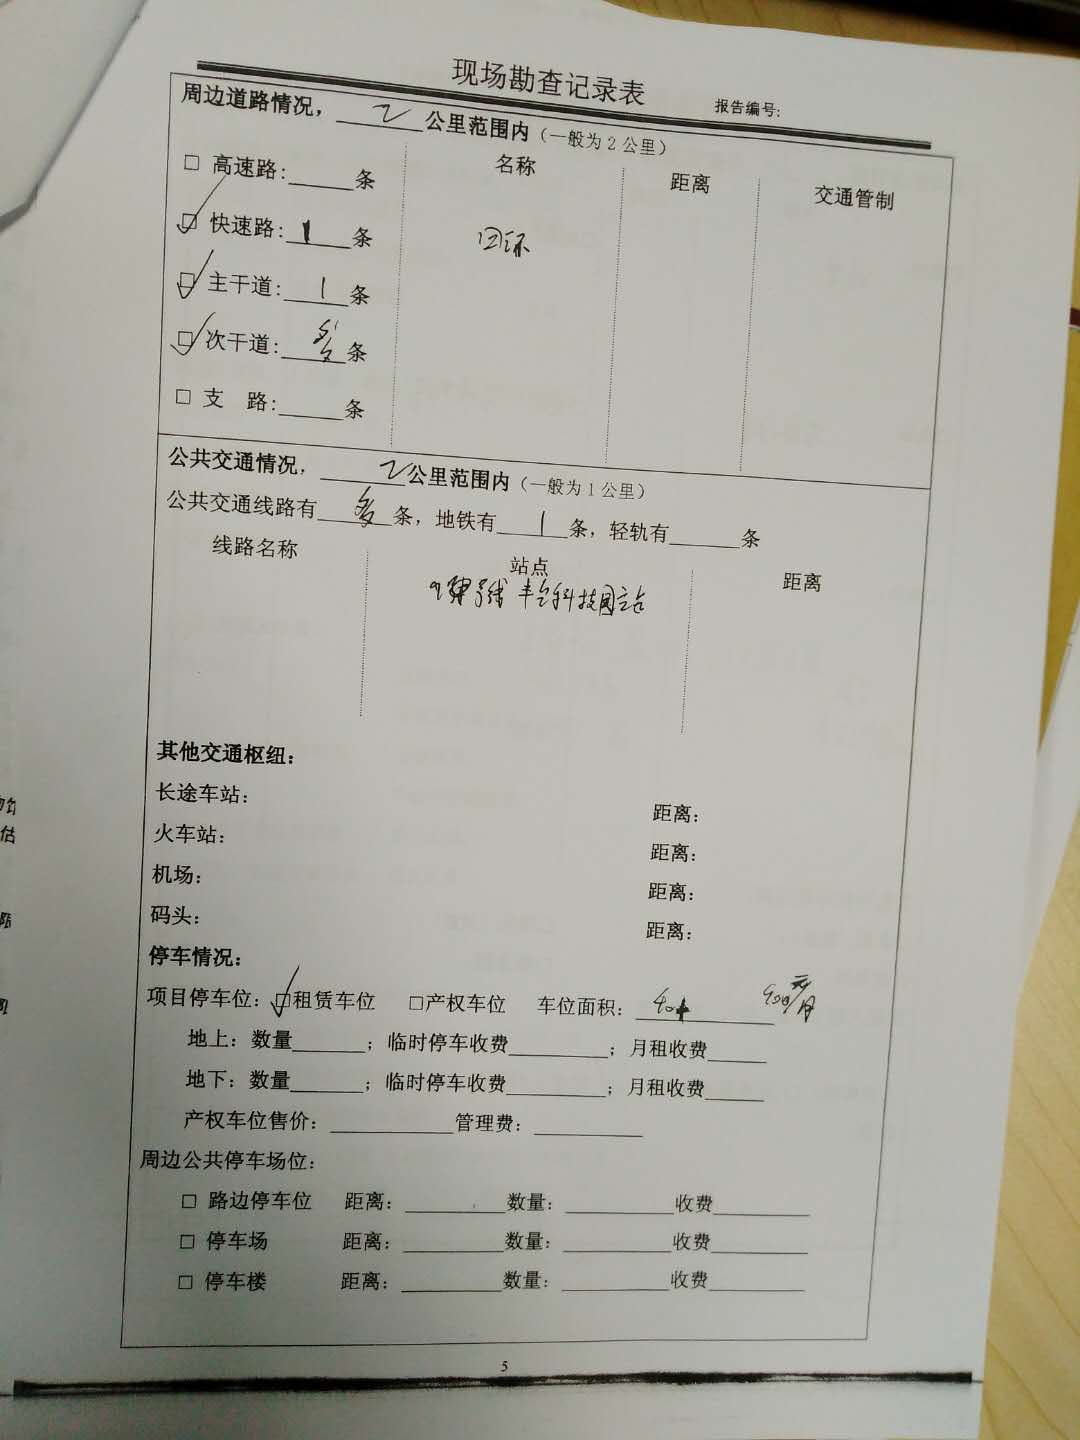 现场勘查记录表
报告编号:
周边道路情况，2公里范围内（一般为2公里）
名称 距离 交通管制
□ 高速路:______条
☑ 快速路:1条 四环
☑ 主干道:1条
☑ 次干道:多条
□ 支 路:______条
公共交通情况，2公里范围内（一般为1公里）
公共交通线路有多条，地铁有1条，轻轨有______条
线路名称 站点 距离
号线 丰台科技园站
其他交通枢纽:
长途车站: 距离:
火车站: 距离:
机场: 距离:
码头: 距离:
停车情况:
项目停车位: ☑租赁车位 □产权车位 车位面积: 元/月
地上: 数量______; 临时停车收费______; 月租收费______
地下: 数量______; 临时停车收费______; 月租收费______
产权车位售价: ______管理费: ______
周边公共停车场位:
□ 路边停车位 距离: ______数量: ______收费______
□ 停车场 距离: ______数量: ______收费______
□ 停车楼 距离: ______数量: ______收费______
5